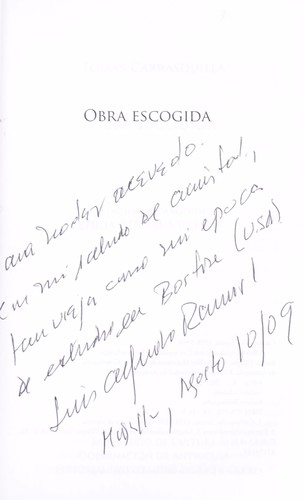 OBRA ESCOGIDA
acevedo.
Con mi saludo de amistad,
tan vieja como mi época
de estudios en Boston (USA)
Luis Alfredo Ramos
Medellín, Agosto 10/09